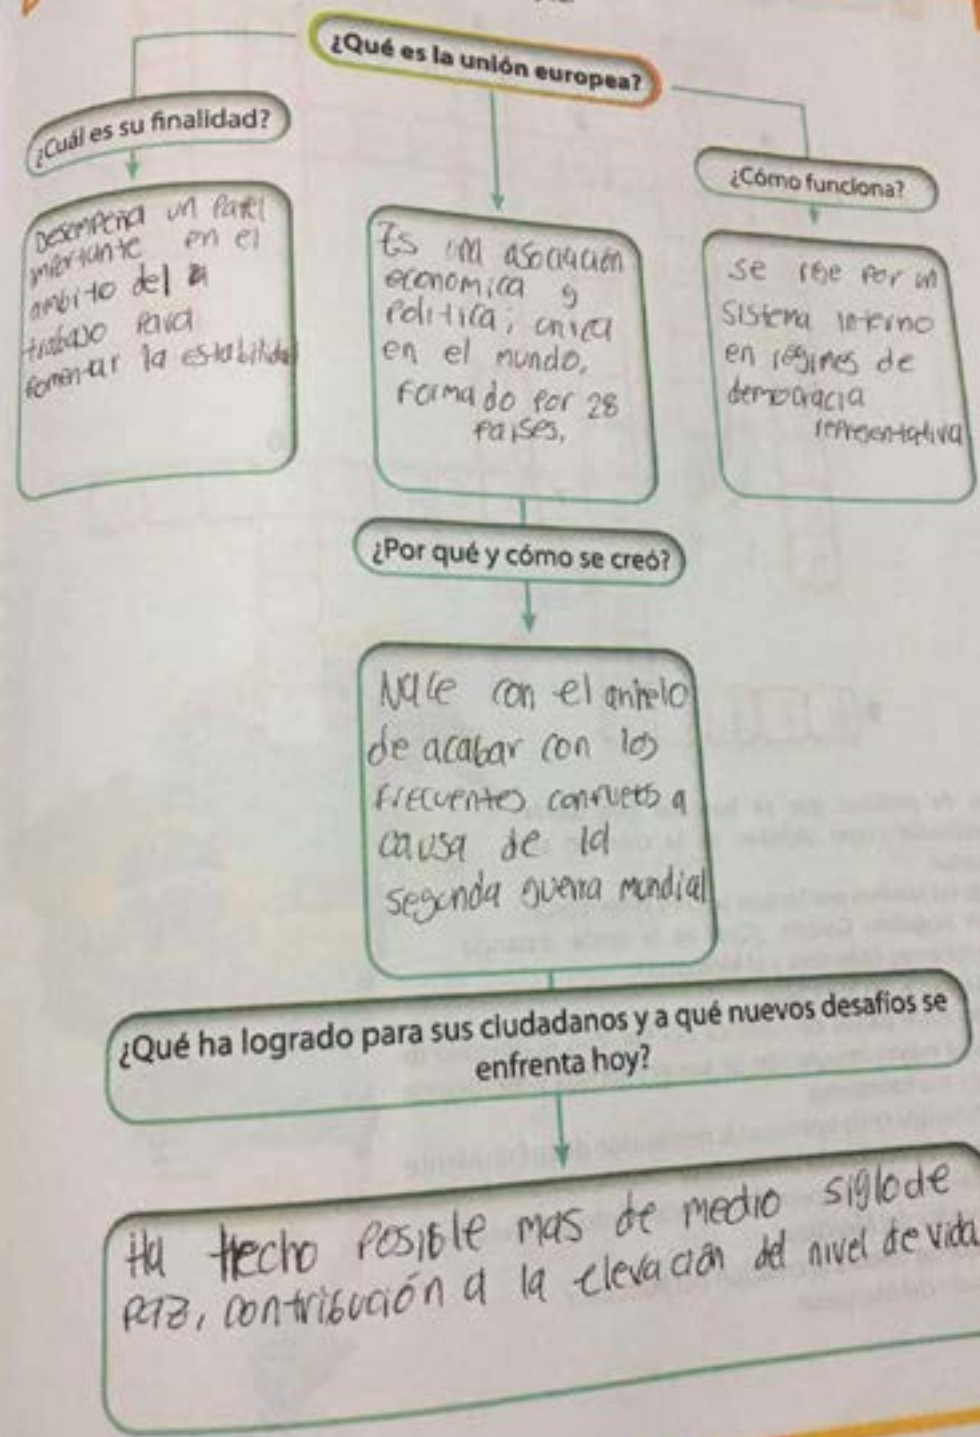 ¿Qué es la unión europea?
¿Cuál es su finalidad?
Desempeña un Papel
imertante en el
ambito del
trabajo Para
fomentar la estabilidad
Es una asociación
economica y
Politica, unica
en el mundo,
formado por 28
países,
¿Cómo funciona?
se rige por un
sistema interno
en régimes de
democracia
representativa
¿Por qué y cómo se creó?
Nace con el anhelo
de acabar con los
frecuentes conflictos a
causa de la
segunda guerra mundial
¿Qué ha logrado para sus ciudadanos y a qué nuevos desafíos se
enfrenta hoy?
Ha hecho Posible mas de medio siglo de
Paz, contribución a la elevación del nivel de vida